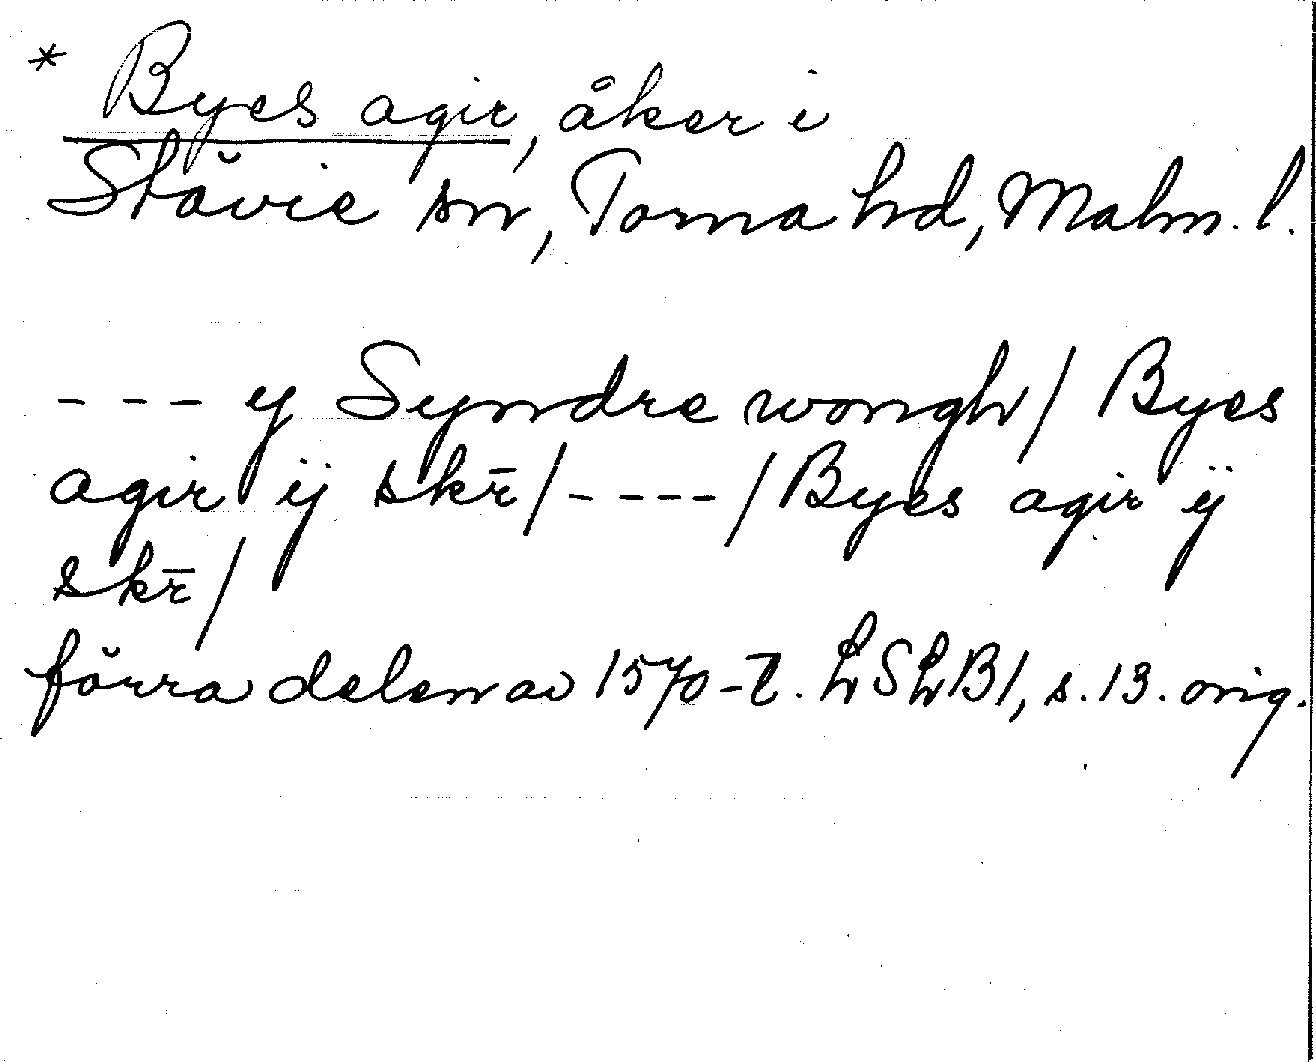 * Byes agir, åker i
Stävie sn, Torna hd, Malm. l.
--- y Syndre wongh/ Byes
agir ÿ skr̄/----/Byes agir ÿ
skr̄/
förra delen av 1570-t. LSLB1, s.13. orig.